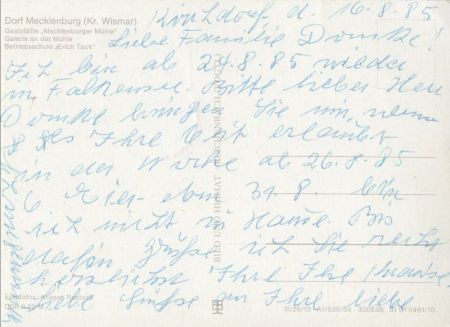 Dorf Mecklenburg (Kr. Wismar)
Gaststätte „Mecklenburger Mühle"
Galerie an der Mühle
Betriebsschule „Erich Tack"
d. 16.8.85
Liebe Familie Domke!
Ich bin ab 24.8.85 wieder
in Falkensee. Bitte lieber Herr
Domke bringen Sie mir, wenn
es Ihre Zeit erlaubt
in der Woche ab 26.8.85
6 Eier. am 31.8. bin
ich nicht zu Hause. Bis
dahin grüße ich Sie recht
herzlichst Ihre Ilse
liebe Grüße an Ihre liebe
BILD UND HEIMAT REICHENBACH (VOGTL)
Rostock
A1/638/84 300638 01 01 0481/10